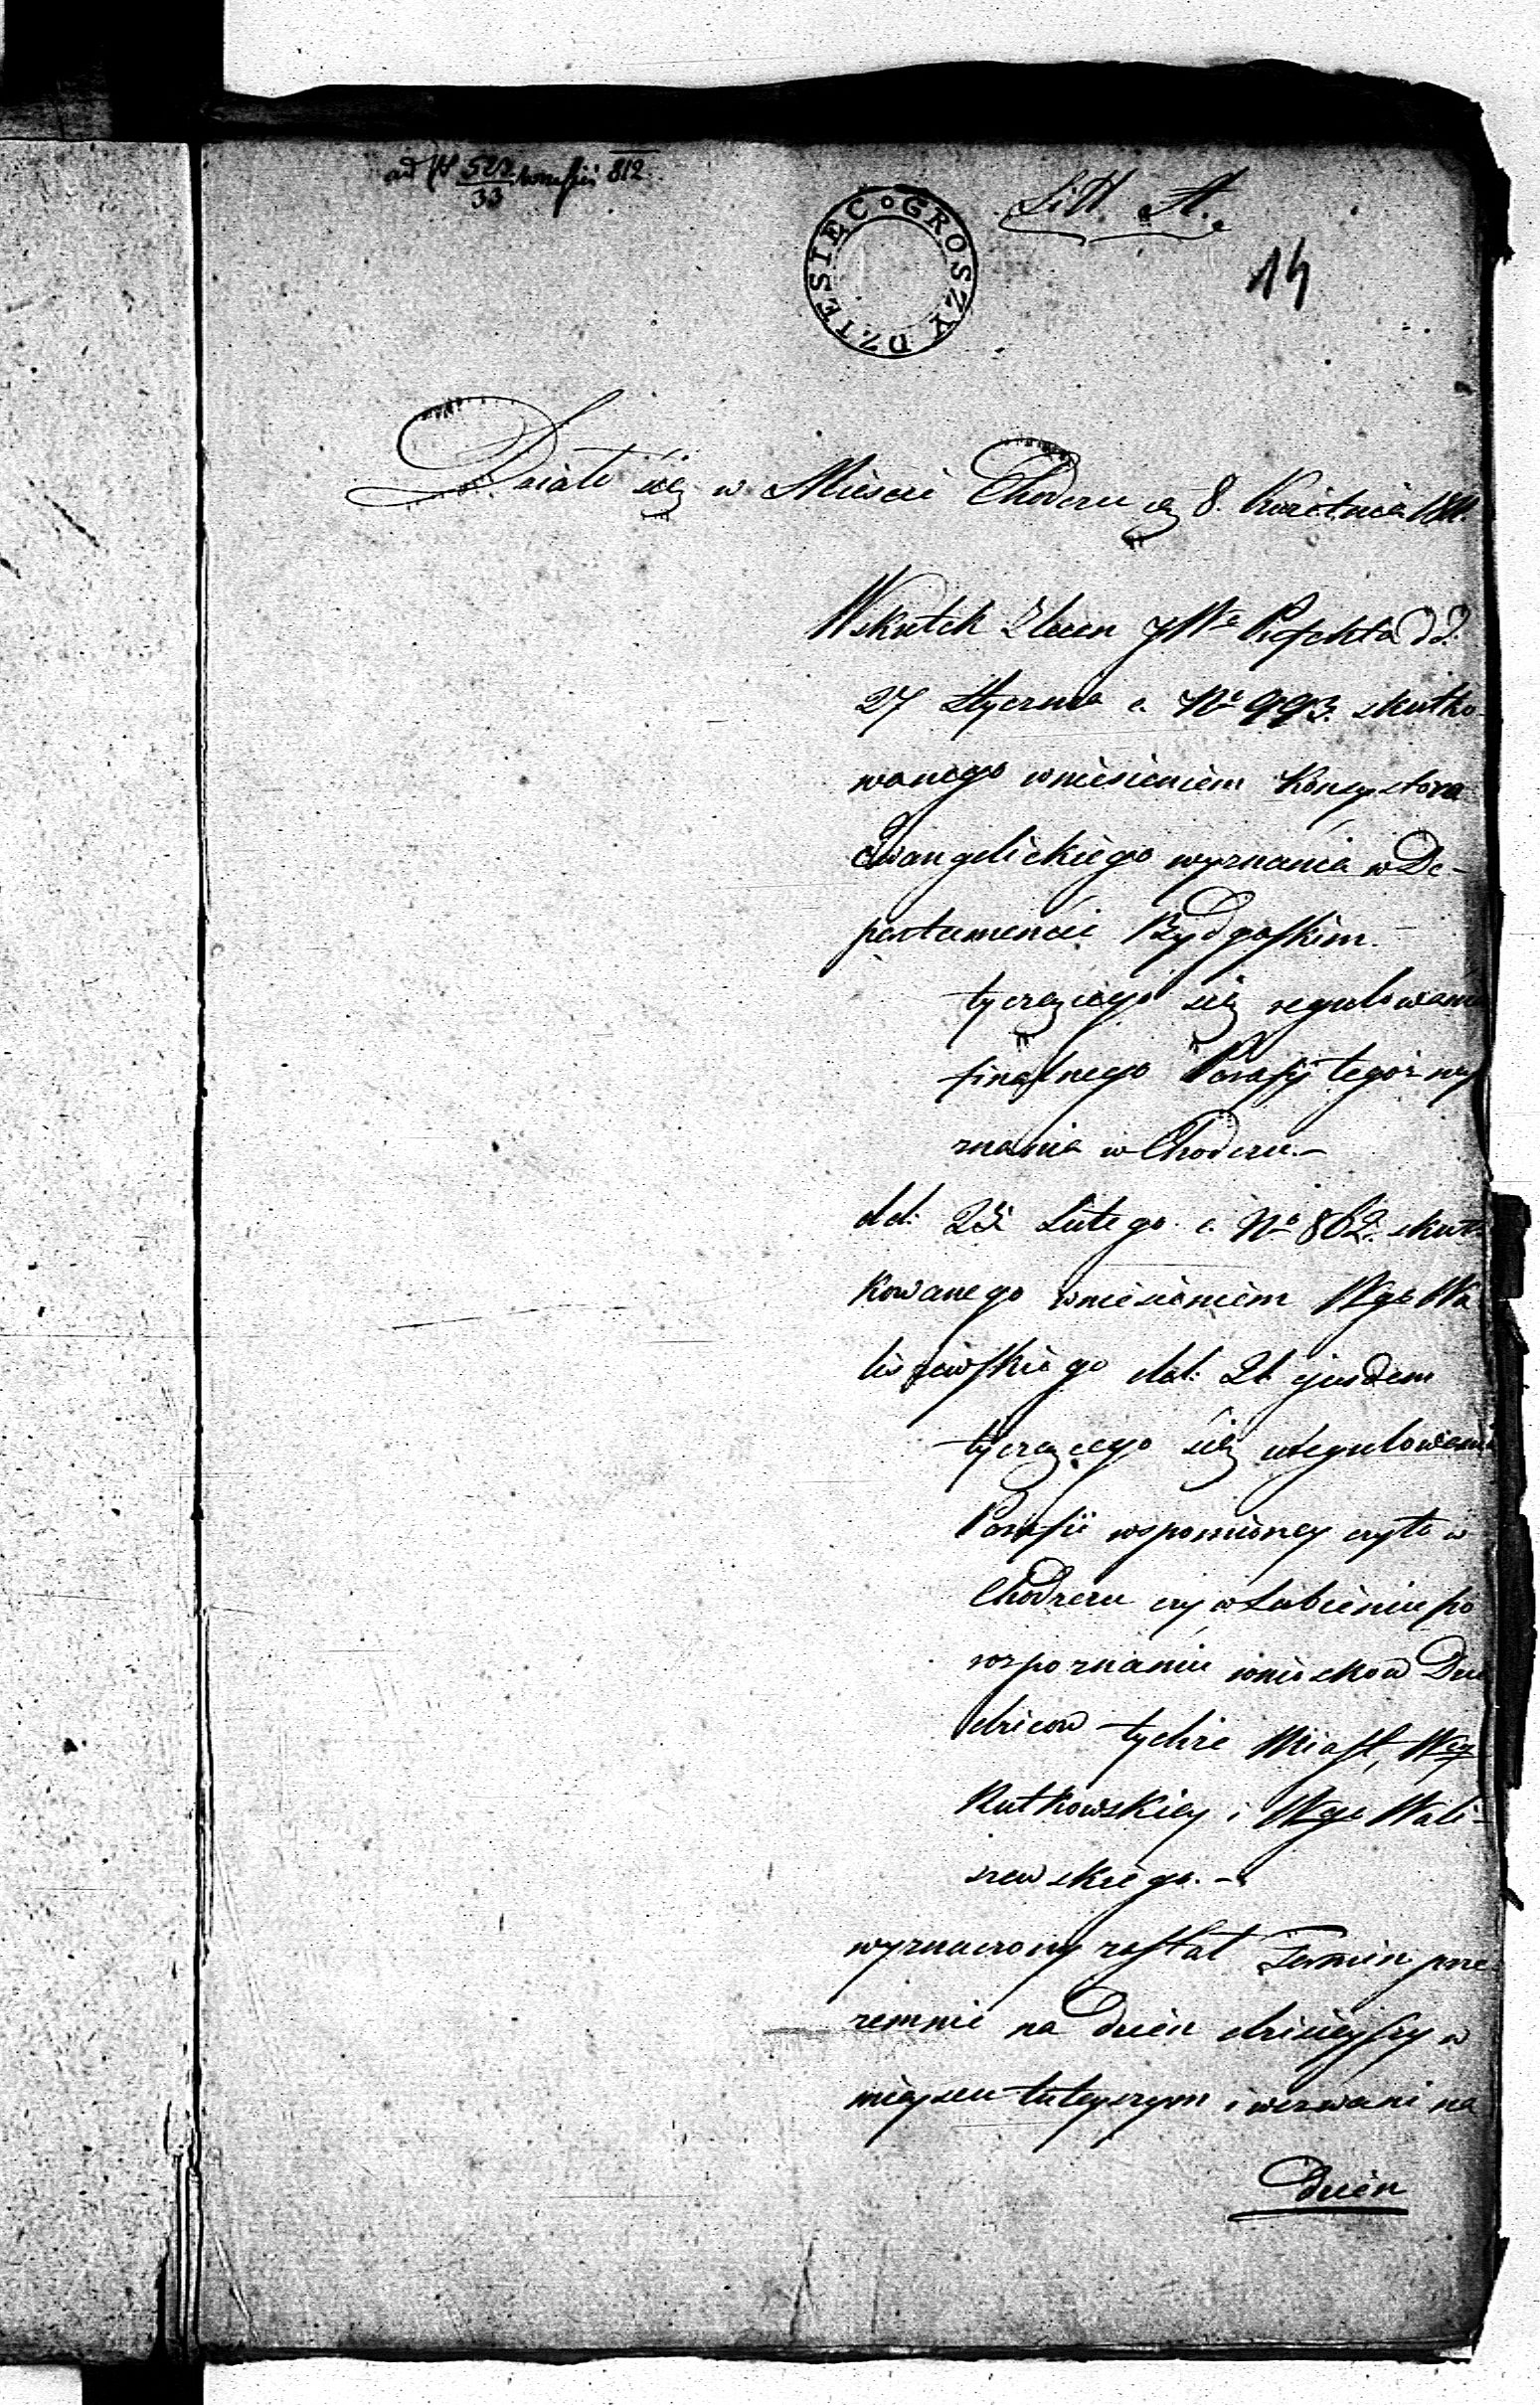 ad N 527/33 812.
Litt. A.
DZIESIEC GROSZY
14
Działo się w Mieście Chodczu dn 8. Kwietnia 1811.
Wskutek Zlecen JWo Prefekta dd.
27 Stycznia c. No 993. skutko-
wanego wniesieniem Konsystorza
Ewangelickiego wyznania w De-
partamencie Bydgoskim.
tyczącego się regulowania
finalnego Parafij tegoż wy
znania w Chodczu.-
dd. 25 Lutego c. No 862. skut-
kowanego wniesieniem Wgo Wa
liszewskiego dat: 21. ejusdem
tyczącego się uregulowania
Parafii wspomnioney czyto w
Chodzczu czy w Lubieniu po
rozpoznaniu wniosków Dzie
dziców tychże Miast, Wey
Rutkowskiey i Wgo Wali-
szewskiego.-
wyznaczony został Termin prze
zemnie na dzień dzisieyszy w
mieyscu tuteyszym i wezwani na
dzień